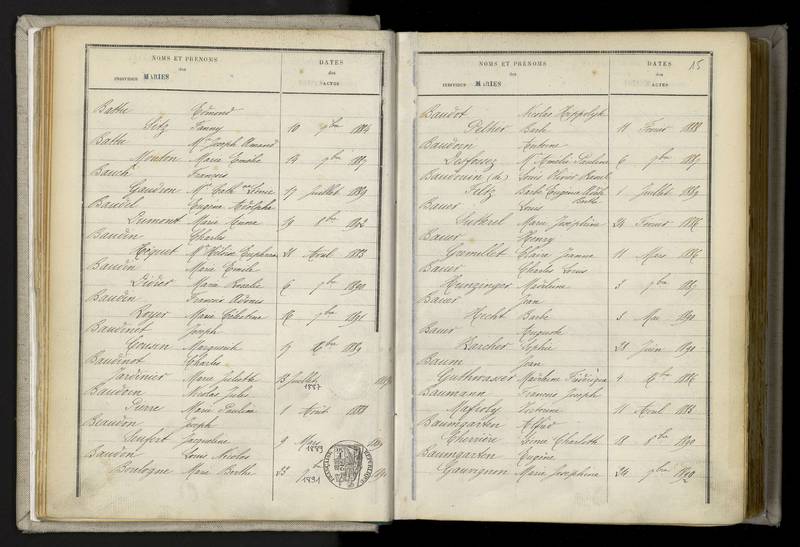 NOMS ET PRÉNOMS
des
INDIVIDUS MARIÉS
DATES
des
ACTES
Bathe Edmond
Seitz Fanny 10 9bre 1884
Bathe Mie Joseph Amand
Mouton Marie Emélie 14 9bre 1887
Bauch François
Gaudron Mie Cath. Léonie 17 Juillet 1889
Baudel Eugène Adolphe
Dumont Marie Anna 19 8bre 1892
Baudin Charles
Hoquet Mie Héloïse Euphrasie 21 Avril 1883
Baudin Marie Emile
Didier Marie Rosalie 6 9bre 1890
Baudin Francis Adonis
Royer Marie Célestine 16 9bre 1891
Baudinot Joseph
Cousin Marguerite
Baudinot Charles
Jardinier Marie Juliette 23 Juillet 1887
Baudoin Nicolas Jules
Pierre Marie Pauline 1 Août 1888
Beaudon Joseph
Senfert Jacqueline 9 Mars 1889
Baudon Louis Nicolas
Boulogne Marie Berthe 23 1891
RÉPUBLIQUE FRANÇAISE
15
NOMS ET PRÉNOMS
des
INDIVIDUS MARIÉS
DATES
des
ACTES
Baudot Nicolas Hippolyte
Peltier Barbe 11 Février 1888
Baudouin Antoine
Desfossez Mie Amélie Pauline 6 9bre 1887
Baudouin (de) Louis Olivier
Feltz Barbe Eugénie Adèle Berthe 1 Juillet 1889
Bauer Louis
Marie Joséphine 24 Février 1886
Bauer Henry
Gumillet Claire Jeanne 11 Mars 1886
Bauer Charles Louis
Hunzinger Madeleine 3 9bre 1887
Bauer Jean
Hecht Barbe 3 Mai 1890
Bauer Auguste
Karcher Sophie 21 Juin 1890
Baum Jean
Guthwasser Madeleine Frédérique 4 Xbre 1886
Baumann François Joseph
Victorine 11 Avril 1888
Baumgarten Alfred
Charrière Louise Charlotte 18 8bre 1890
Baumgarten Eugène
Gauvignon Marie Joséphine 24 9bre 1890